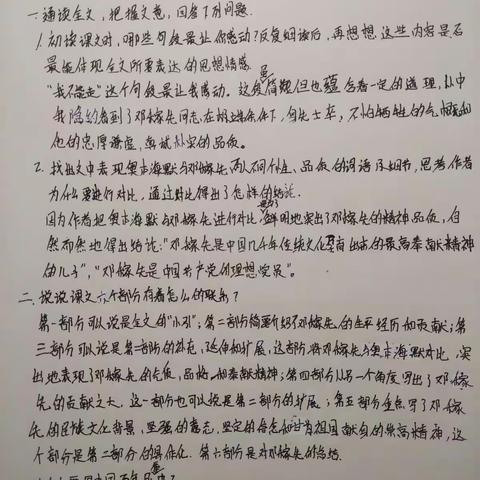 一. 通读全文，把握文意，回答下列问题.
1. 初读课文时，哪些句段最让你感动？反复细读后，再想想，这些内容是否
最能体现全文所要表达的思想情感.
"我不能走"这个句段最让我感动。这段简短但也蕴含着一定的道理，从中
我隐约看到了邓稼先同志在艰难条件下，身先士卒，不怕牺牲的
他的忠厚谦虚，真诚朴实的品质。
2. 找出文中表现奥本海默与邓稼先两人不同个性、品质的词语与细节，思考作者
为什么要进行对比，通过对比得出了怎样的结论.
因为作者把奥本海默与邓稼先进行对比，是为了鲜明地突出了邓稼先的精神品质，自
然而然地得出结论："邓稼先是中国几千年传统文化孕育出来的最高奉献精神
的儿子"，"邓稼先是中国共产党的理想党员"。
二. 说说课文六个部分有着怎么的联系？
第一部分可以说是全文的"小引"；第二部分简要介绍邓稼先的生平经历和贡献；第
三部分可以说是第二部分的补充、延伸和扩展，这部分将邓稼先与奥本海默对比，突
出地表现了邓稼先的气质，品格和奉献精神；第四部分从另一个角度，写出了邓稼
先的贡献之大，这一部分也可以说是第二部分的扩展；第五部分重点写了邓稼
先的民族文化背景，坚强的意志，坚定的信念和甘为祖国献身的崇高精神，这
个部分是第二部分的具体化. 第六部分是对邓稼先的总结.